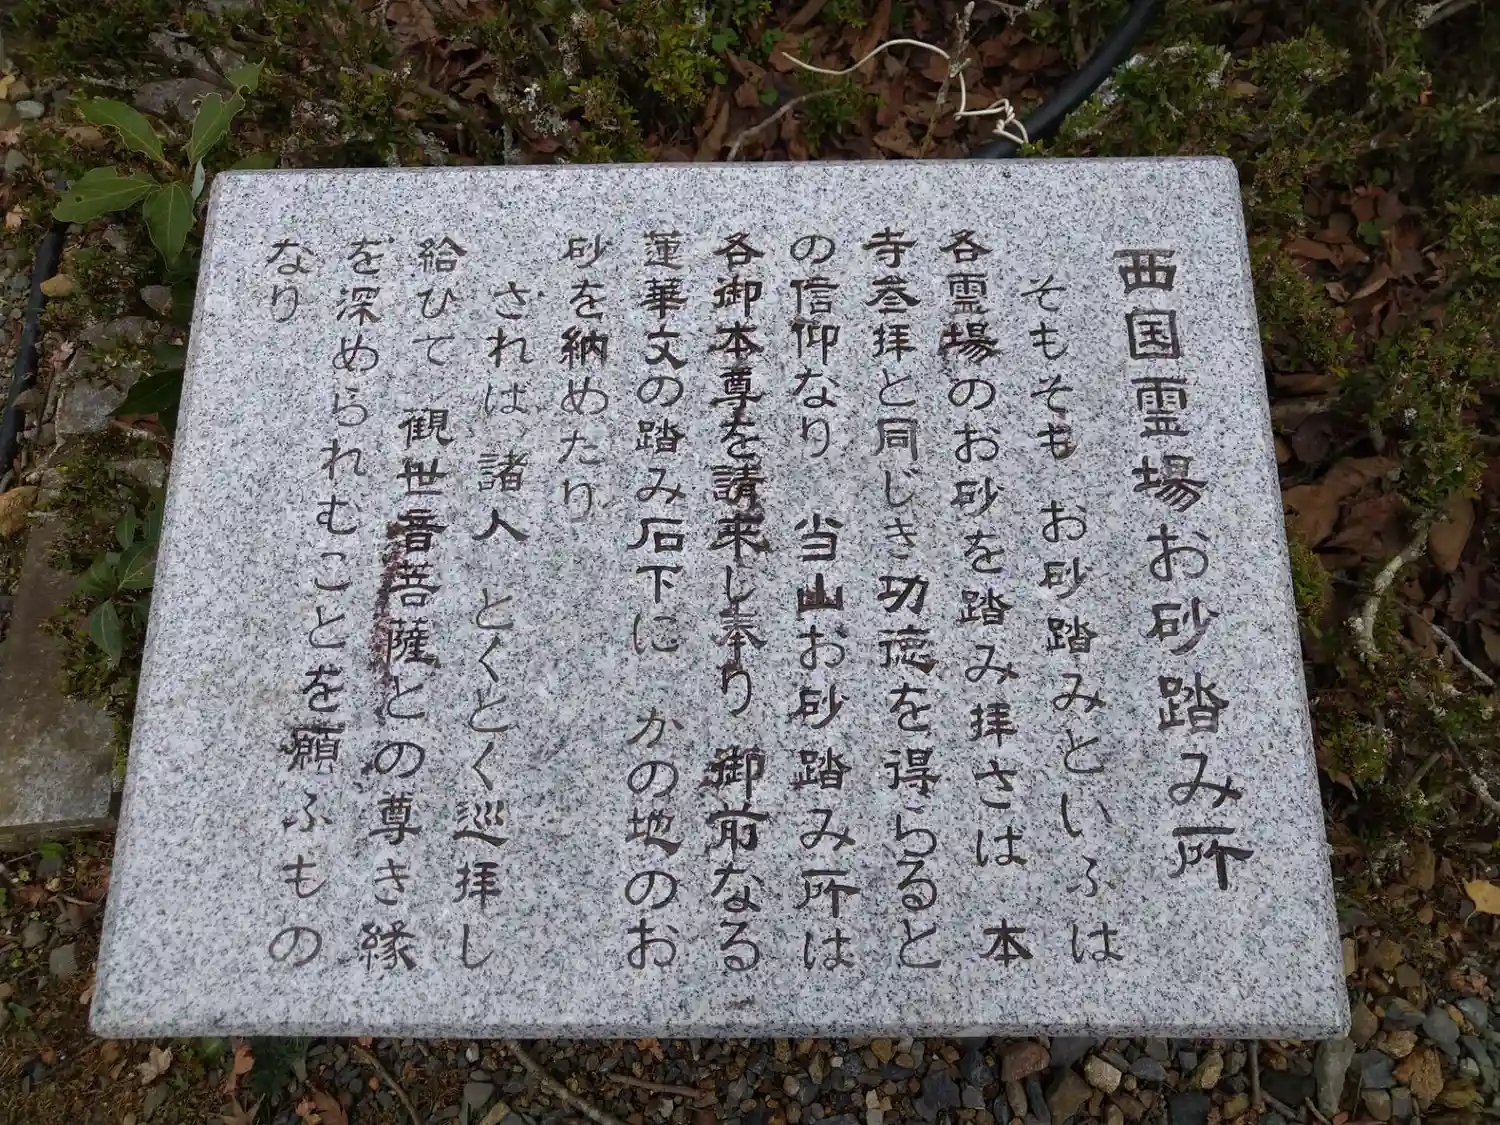 西国霊場お砂踏み所
そもそも お砂踏みといふは
各霊場のお砂を踏み拝さは 本
寺参拝と同じき功徳を得らると
の信仰なり 当山お砂踏み所は
各御本尊を請来し奉り 御前なる
蓮華文の踏み石下に かの地のお
砂を納めたり
されは 諸人 とくとく巡拝し
給ひて 観世音菩薩との尊き縁
を深められむことを願ふもの
なり